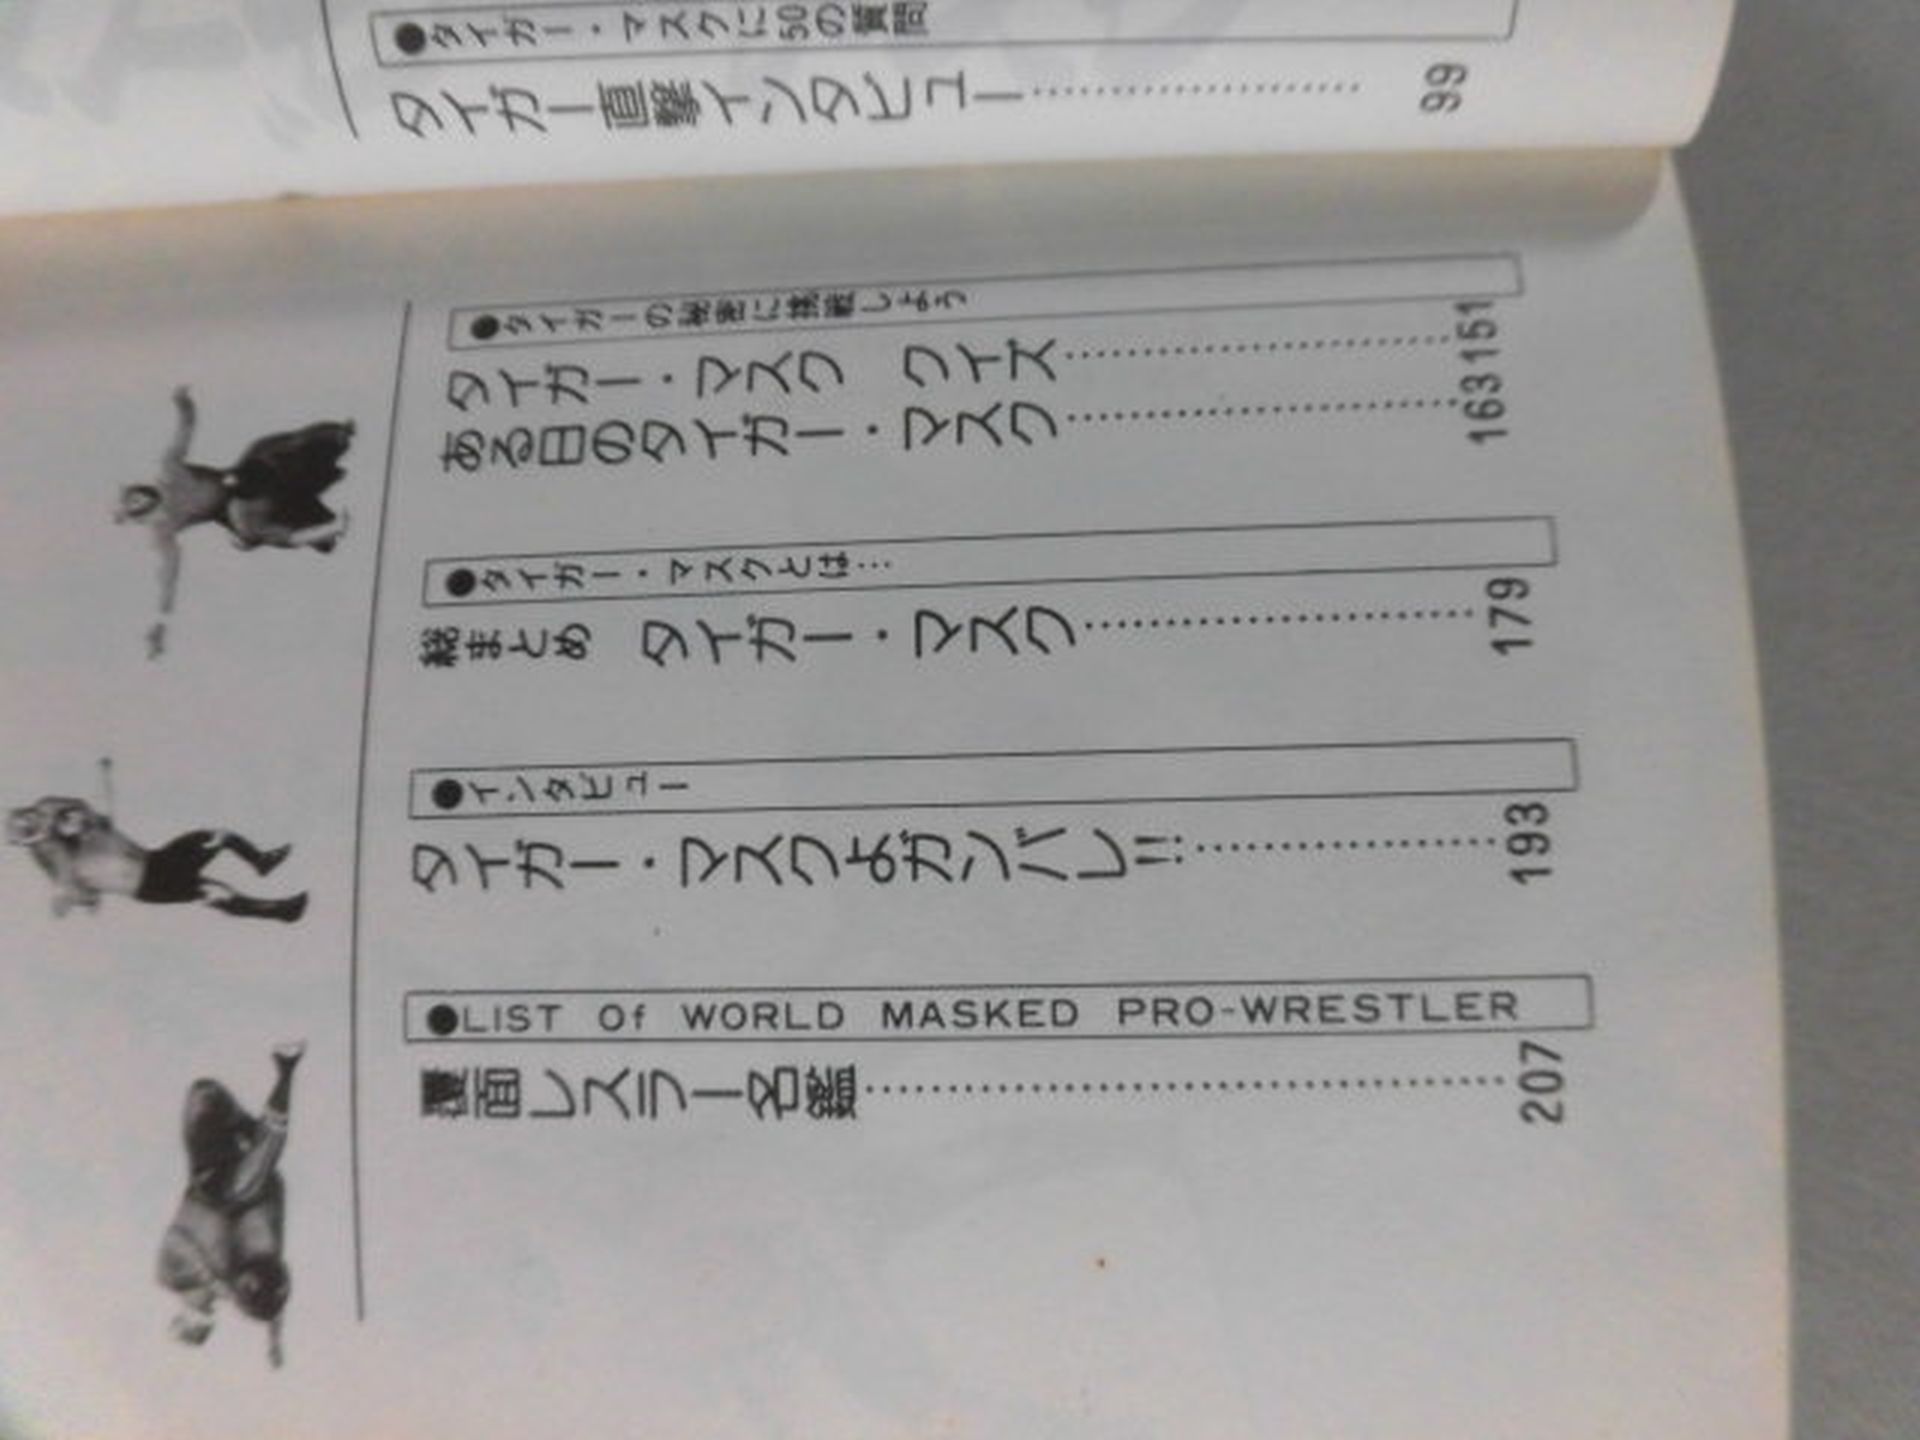 ●タイガー・マスクに50の質問
タイガー直撃インタビュー…………………… 99
●タイガーの秘密に挑戦しよう
タイガー・マスク クイズ……………………151
ある日のタイガー・マスク……………………163
●タイガー・マスクとは…
総まとめ タイガー・マスク……………………179
●インタビュー
タイガー・マスクよガンバレ!!………………193
●LIST Of WORLD MASKED PRO-WRESTLER
覆面レスラー名鑑…………………………………207